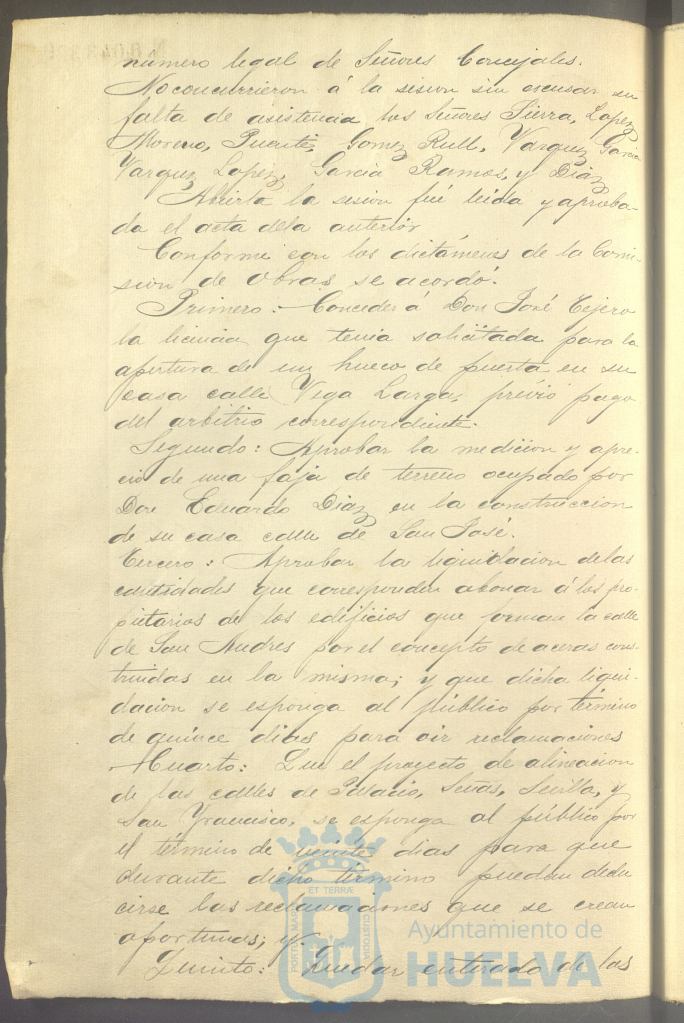 número legal de Señores Concejales.
No concurrieron á la sesion sin escusar su
falta de asistencia los Señores Sierra, Lopez
Moreno, Puente, Gomez Rull, Vazquez Garcia
Vazquez Lopez, Garcia Ramos, y Diaz
Abierta la sesion fué leida y aproba-
da el acta dela anterior
Conforme con los dictámenes de la Comi-
sion de Obras se acordó.
Primero: Conceder á Don José Tejero
la licencia que tenia solicitada para la
apertura de un hueco de puerta en su
casa calle Vega Larga, prévio pago
del arbitrio correspondiente.
Segundo: Aprobar la medicion y apre-
cio de una faja de terreno ocupado por
Don Eduardo Diaz en la construccion
de su casa calle de San José.
Tercero: Aprobar la liquidacion delas
cantidades que corresponden abonar á los pro-
pietarios de los edificios que forman la calle
de San Andres por el concepto de aceras cons-
truidas en la misma; y que dicha liqui-
dacion se esponga al público por término
de quince dias para oir reclamaciones
Cuarto: Que el proyecto de alineacion
de las calles de Palacio, Señas, Sevilla, y
San Francisco, se esponga al público por
el término de veinte dias para que
durante dicho término puedan dedu
cirse las reclamaciones que se crean
oportunas; y.
Quinto: Quedar enterado de las
PORTUS MARIS ET TERRÆ CUSTODIA
Ayuntamiento de
HUELVA